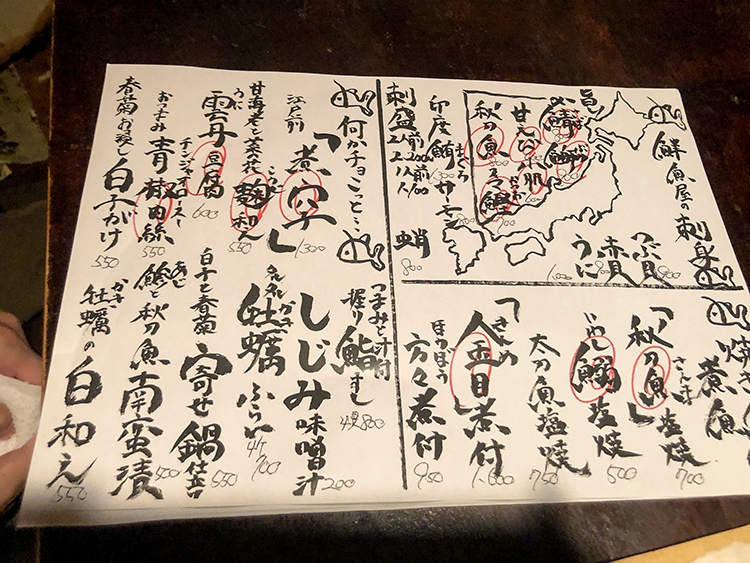 鮮魚屋の刺身
旨
つぶ貝
赤貝
うに
1,000
甘えび
秋刀魚
刺盛
2人前
印度鮪
まぐろ
1,300
サーモン
蛸
800
焼
煮魚
「秋刀魚」塩焼
さんま
700
鰯塩焼
いわし
500
太刀魚塩焼
750
「金目」煮付
きんめ
1,600
方々煮付
ほうぼう
950
何かチョこっと…
江戸前
「煮穴子」
1,300
甘海老と菜の花
麹和え
こうじ
550
うに
雲丹豆腐
600
チンジャオロースー
おつまみ青椒肉絲
550
春菊お浸し白子がけ
550
つまみと汁付
握り鮨
すし
4貫800
しじみ味噌汁
200
タルタル
牡蠣ふらい
かき
4ケ700
白子と春菊
寄せ鍋仕立
550
鯵と秋刀魚南蛮漬
あじ
500
牡蠣の白和え
かき
550